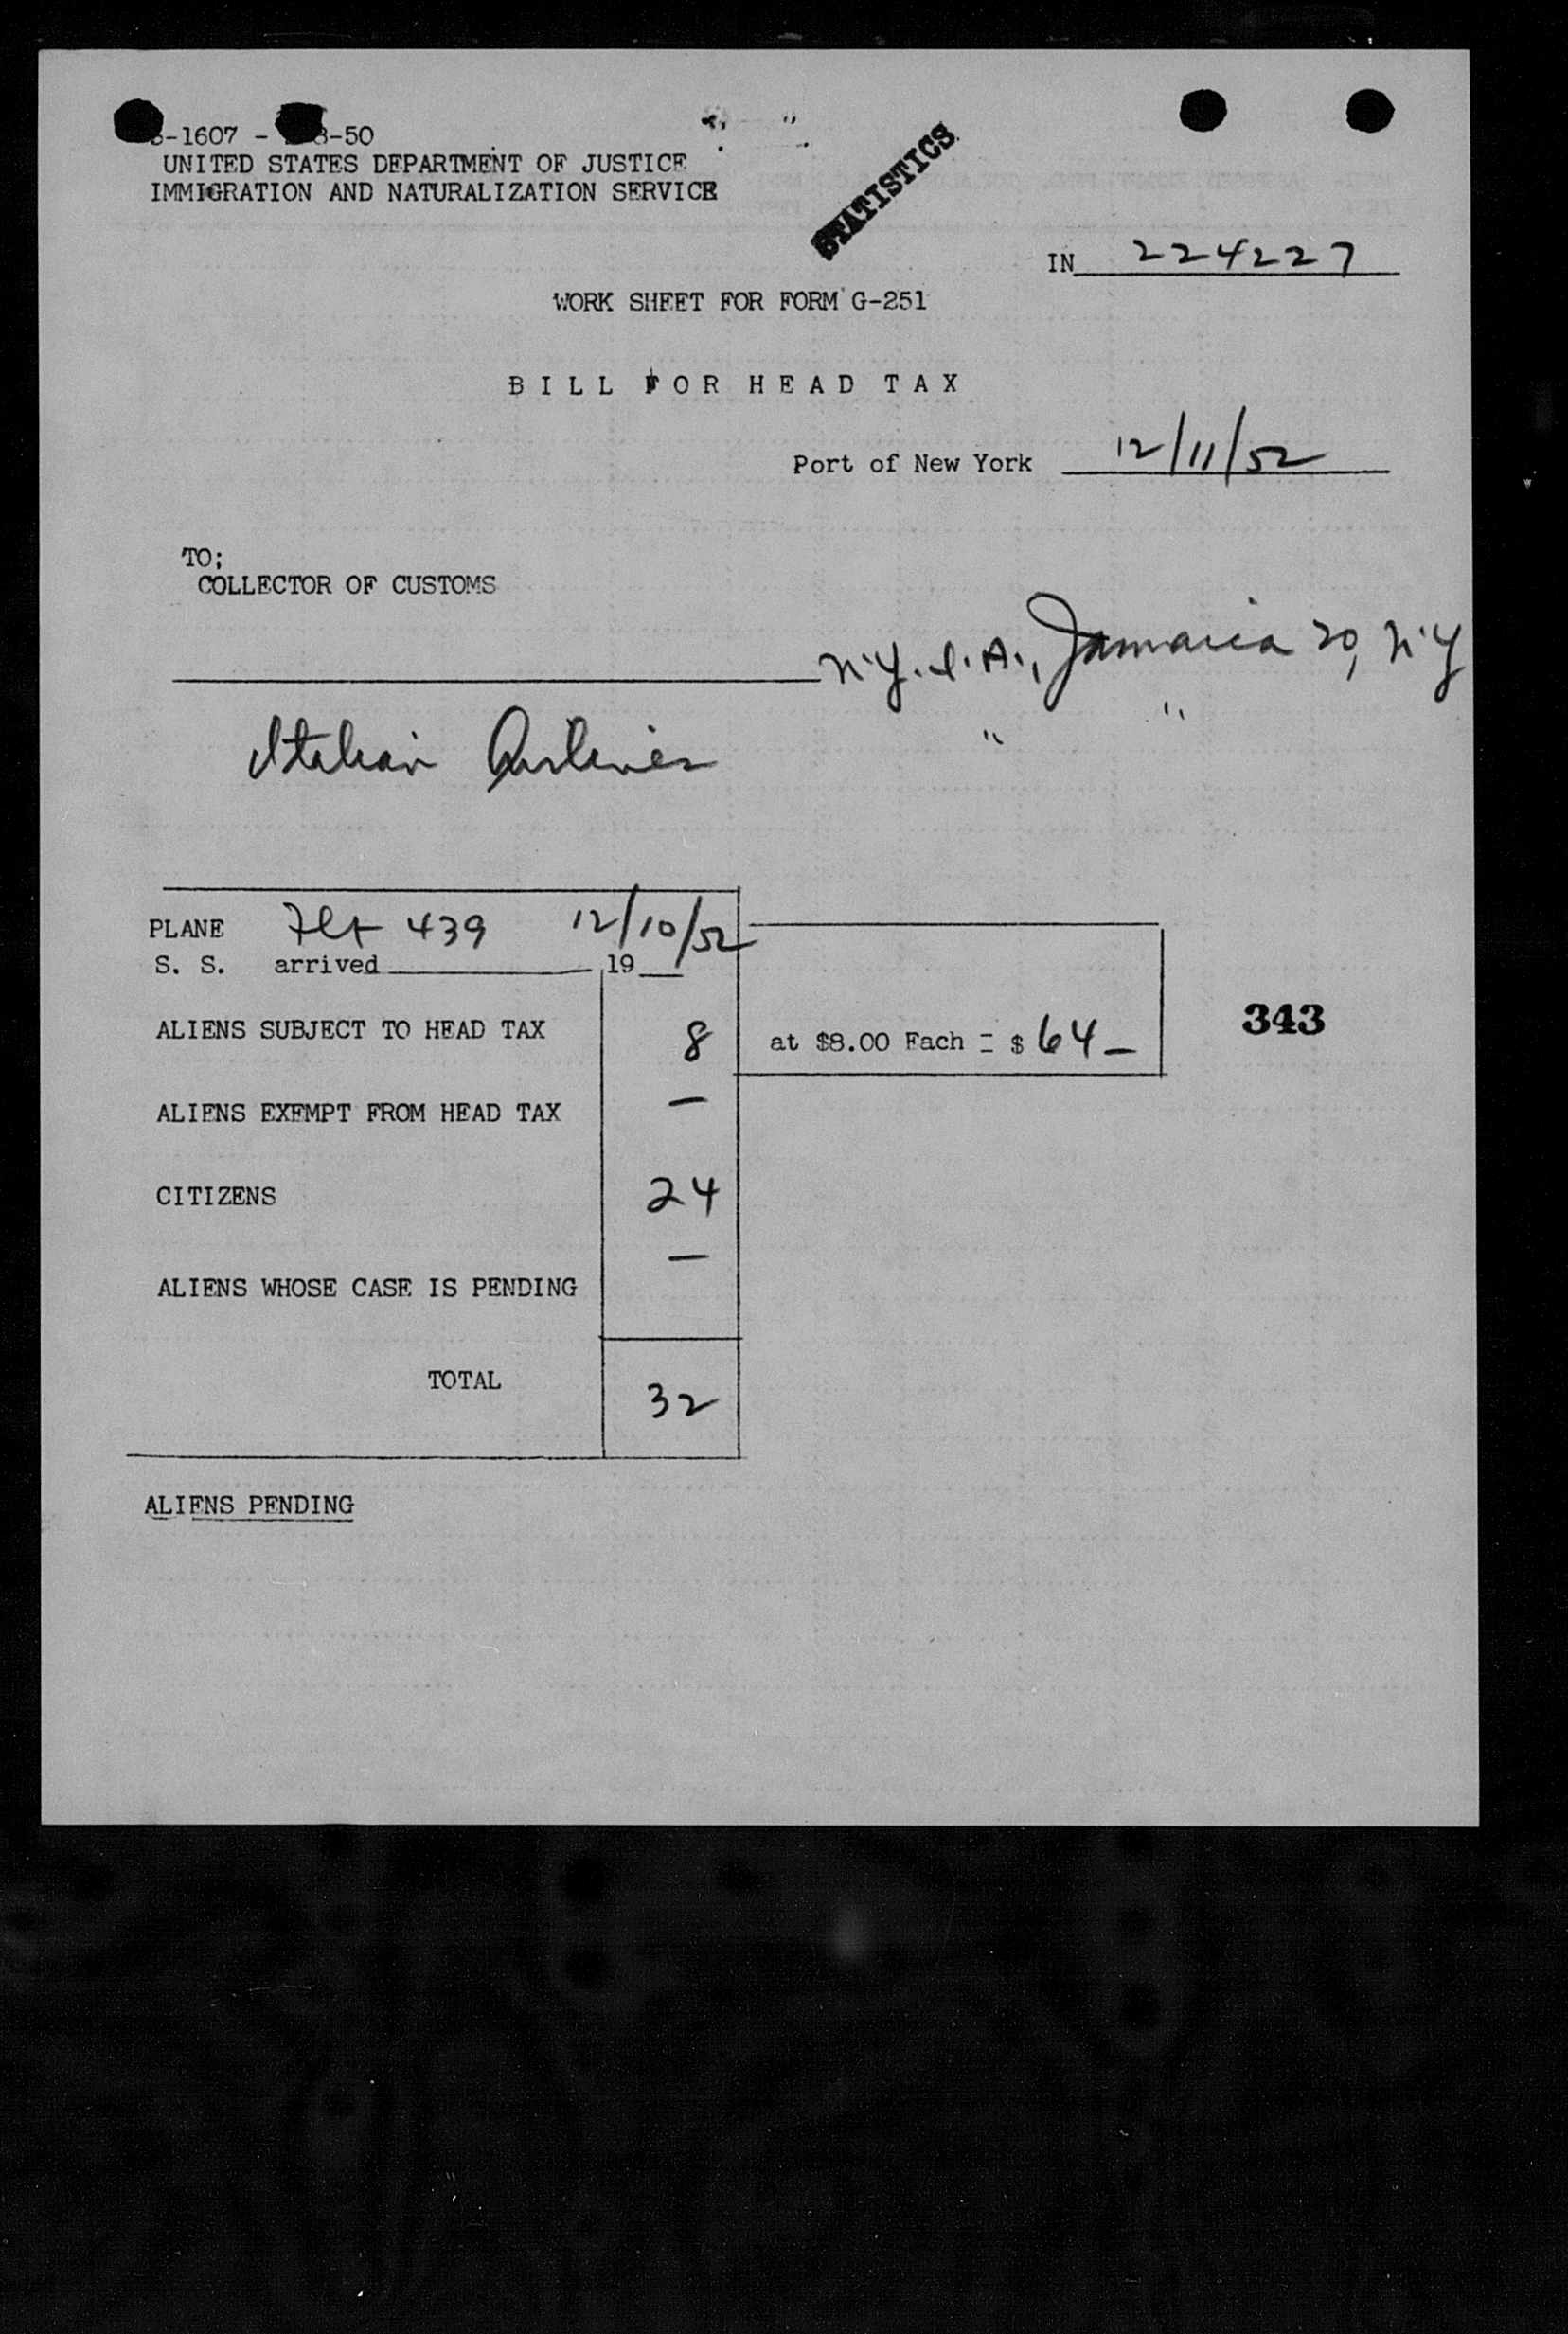 -1607 - -50
UNITED STATES DEPARTMENT OF JUSTICE
IMMIGRATION AND NATURALIZATION SERVICE
STATISTICS
IN 224227
WORK SHEET FOR FORM G-251
BILL FOR HEAD TAX
Port of New York 12/11/52
TO;
COLLECTOR OF CUSTOMS
N.Y.I.A., Jamaica 20, N.Y
Italian Airlines " "
PLANE Flt 439 12/10/52
S. S. arrived 19
ALIENS SUBJECT TO HEAD TAX 8 at $8.00 Each = $ 64 –
343
ALIENS EXEMPT FROM HEAD TAX –
CITIZENS 24
ALIENS WHOSE CASE IS PENDING –
TOTAL 32
ALIENS PENDING